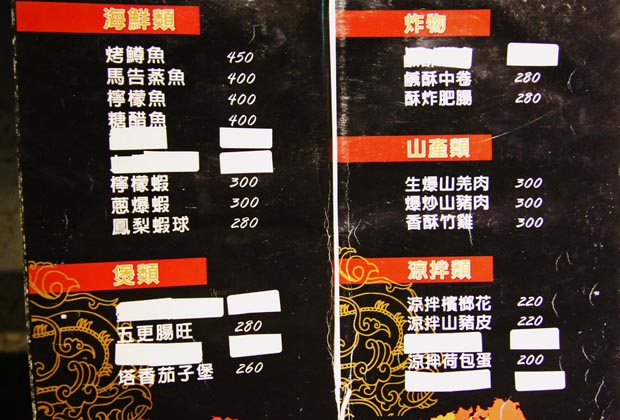 海鮮類
烤鱒魚 450
馬告蒸魚 400
檸檬魚 400
糖醋魚 400
檸檬蝦 300
蔥爆蝦 300
鳳梨蝦球 280
煲類
五更腸旺 280
塔香茄子堡 260
炸物
鹹酥中卷 280
酥炸肥腸 280
山產類
生爆山羌肉 300
爆炒山豬肉 300
香酥竹雞 300
涼拌類
涼拌檳榔花 220
涼拌山豬皮 220
涼拌荷包蛋 200